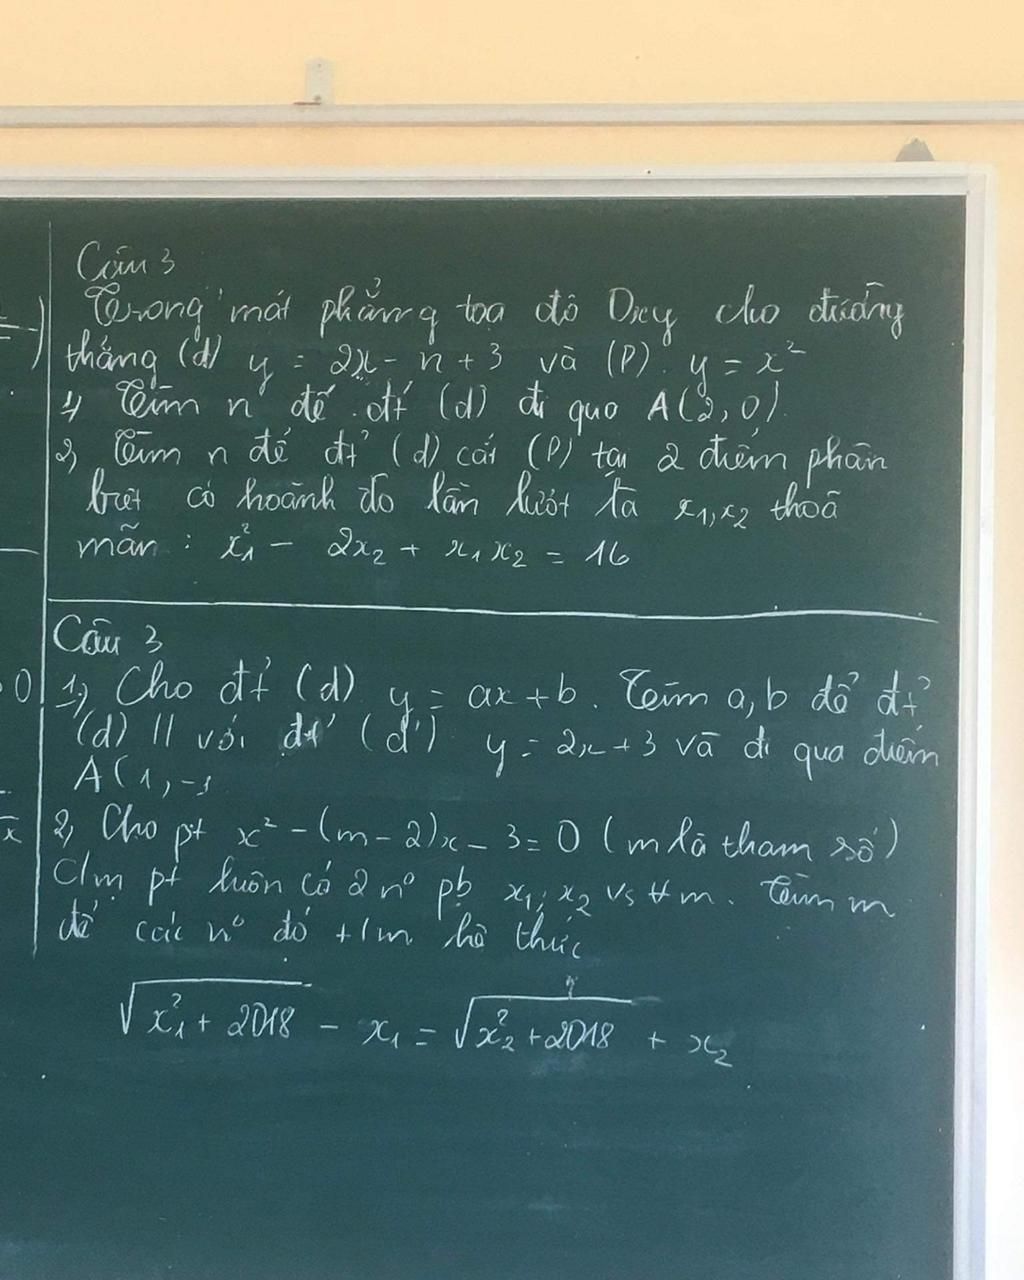 Câu 3
Trong mặt phẳng tọa độ Oxy cho đường
thẳng (d) y = 2x - n + 3 và (P). y = x²
1, Tìm n để đt (d) đi qua A(2,0).
2, Tìm n để đt (d) cắt (P) tại 2 điểm phân
biệt có hoành độ lần lượt là x₁, x₂ thoả
mãn : x₁² - 2x₂ + x₁x₂ = 16
Câu 3
0
1, Cho đt (d) y = ax + b. Tìm a, b để đt
(d) // với đt (d') y = 2x + 3 và đi qua điểm
A(1, -1
x
2, Cho pt x² - (m - 2)x - 3 = 0 (m là tham số)
C/m pt luôn có 2 n° pb x₁; x₂ vs ∀m. Tìm m
để các n° đó t/m hệ thức
√(x₁² + 2018) - x₁ = √(x₂² + 2018) + x₂